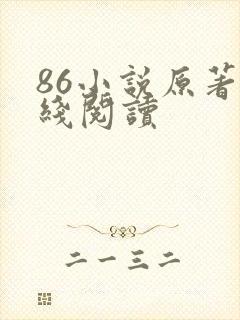 86小説原著
綫閱讀
二一三二